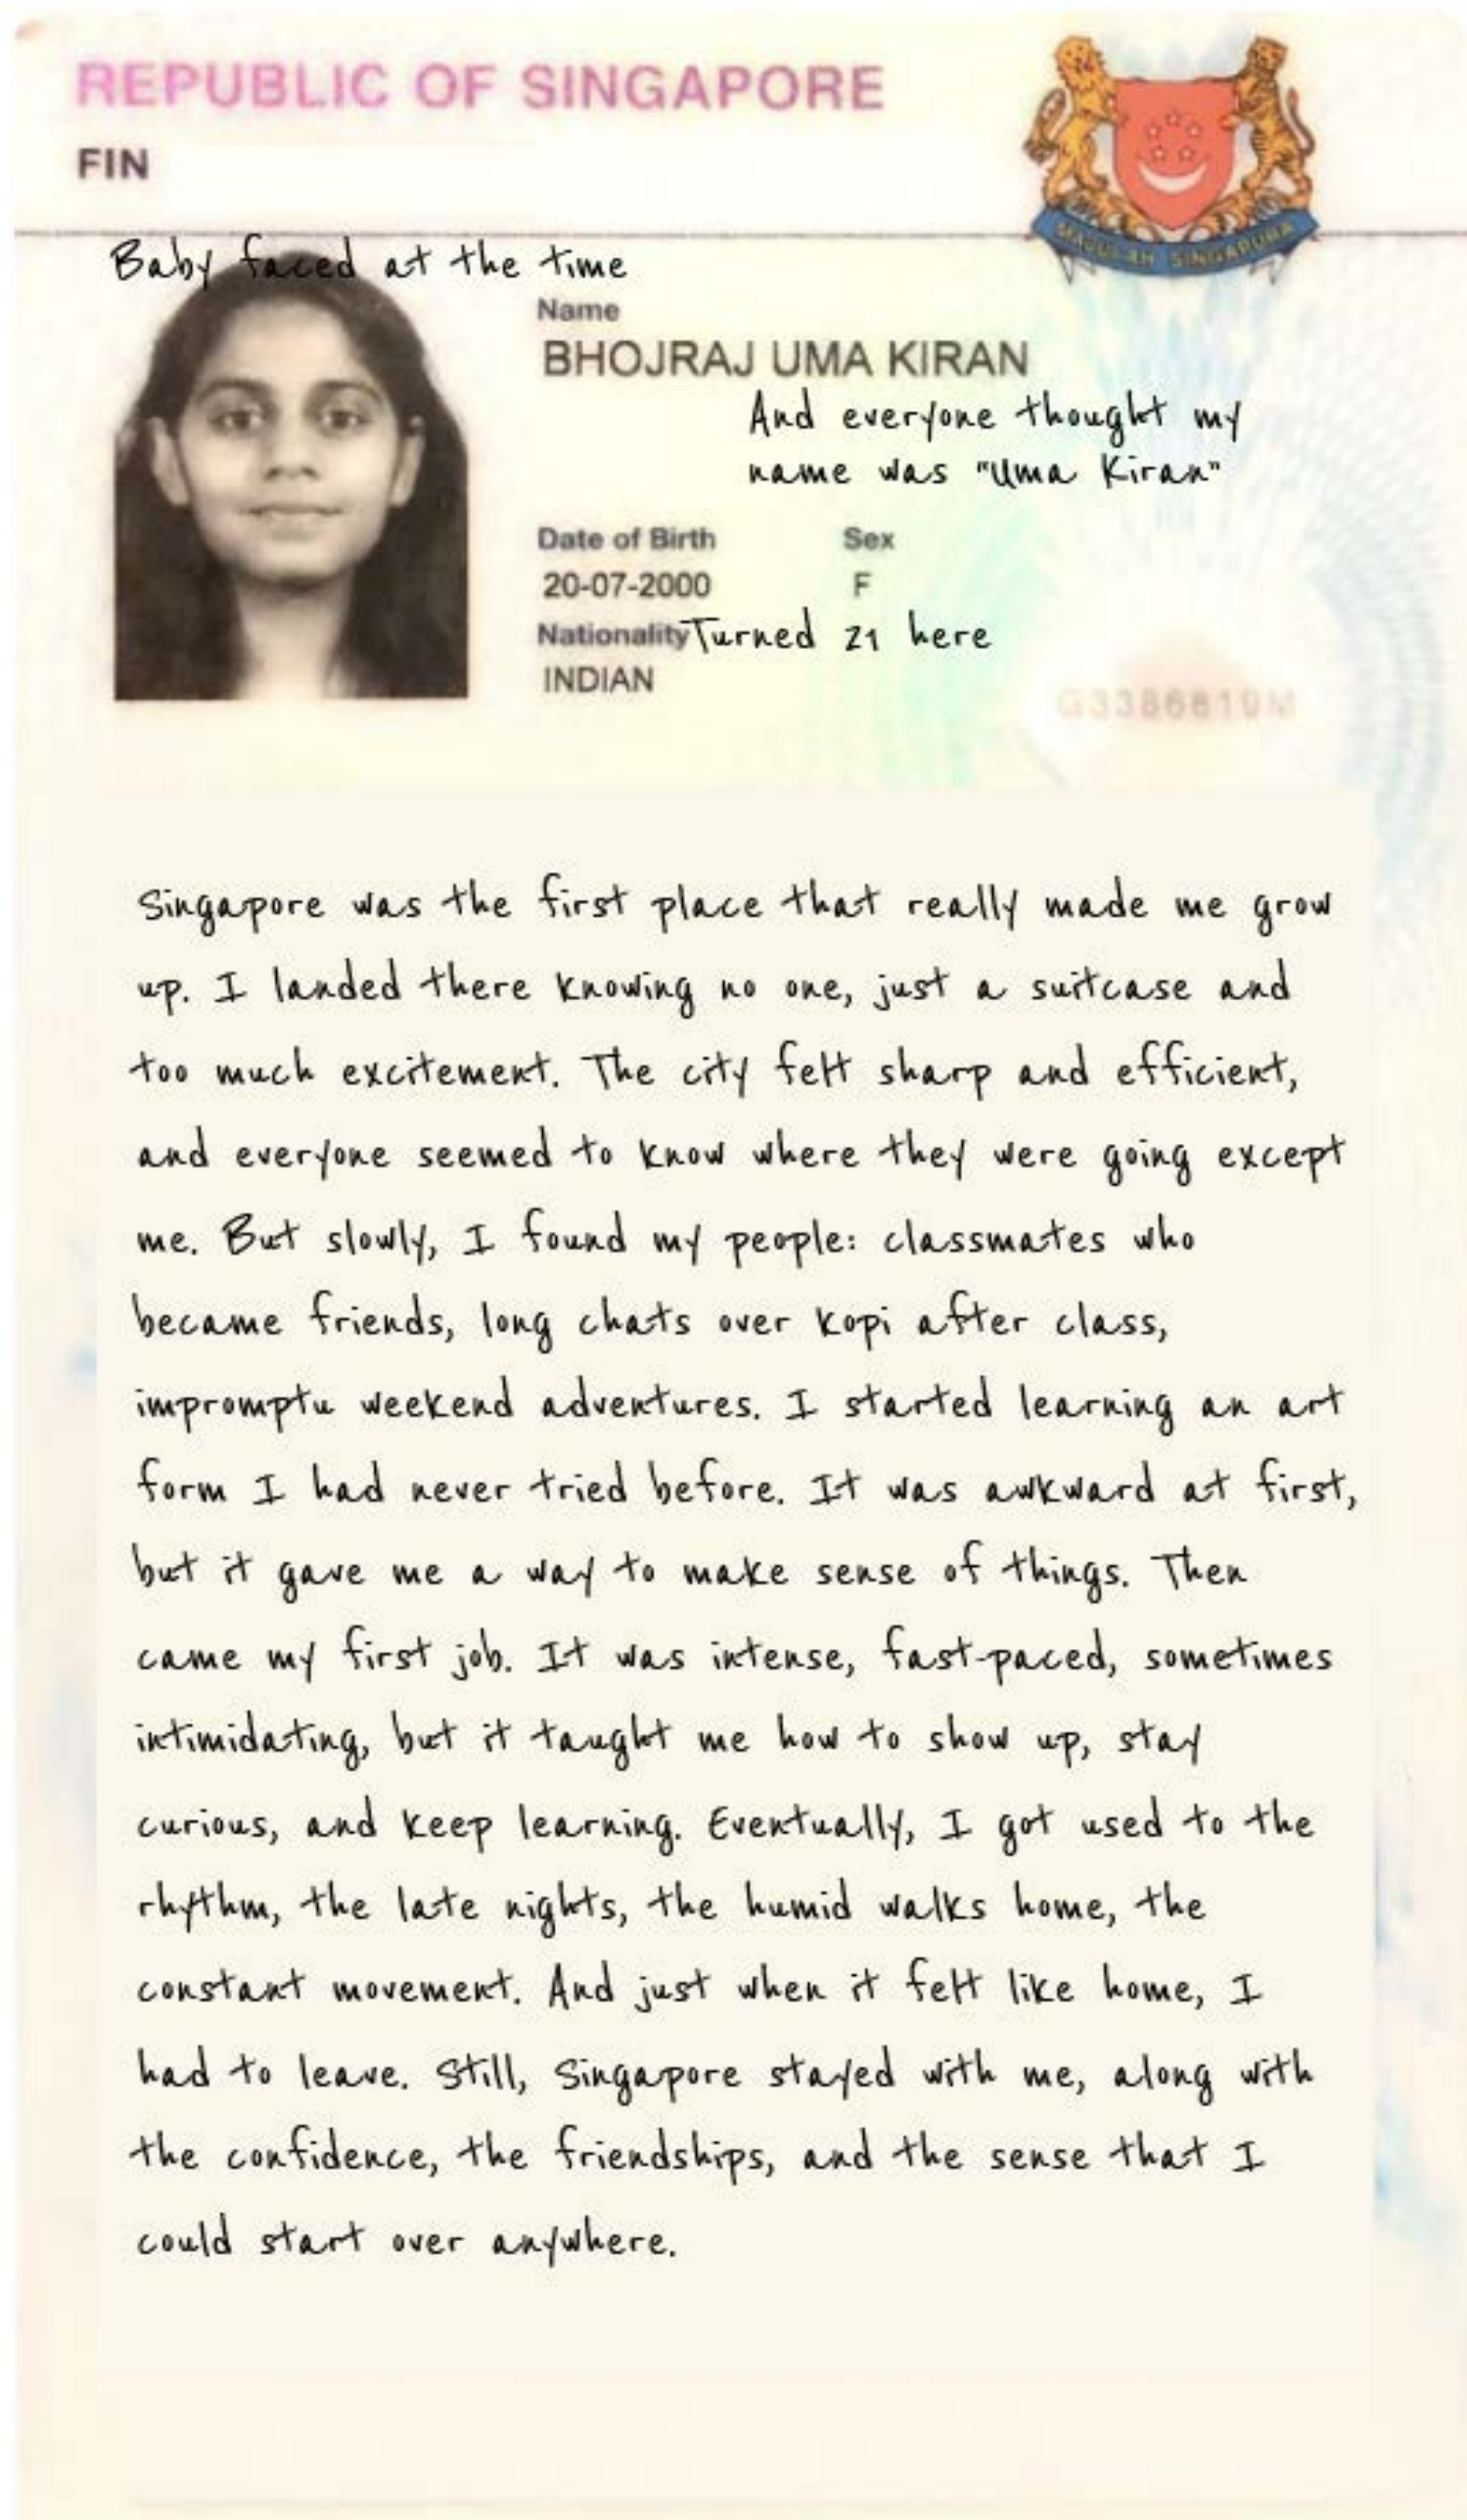 REPUBLIC OF SINGAPORE
FIN
MAJULAH SINGAPURA
Baby faced at the time
Name
BHOJRAJ UMA KIRAN
And everyone thought my
name was "Uma Kiran"
Date of Birth Sex
20-07-2000 F
Nationality Turned 21 here
INDIAN
G3386819M
Singapore was the first place that really made me grow
up. I landed there knowing no one, just a suitcase and
too much excitement. The city felt sharp and efficient,
and everyone seemed to know where they were going except
me. But slowly, I found my people: classmates who
became friends, long chats over kopi after class,
impromptu weekend adventures. I started learning an art
form I had never tried before. It was awkward at first,
but it gave me a way to make sense of things. Then
came my first job. It was intense, fast-paced, sometimes
intimidating, but it taught me how to show up, stay
curious, and keep learning. Eventually, I got used to the
rhythm, the late nights, the humid walks home, the
constant movement. And just when it felt like home, I
had to leave. Still, Singapore stayed with me, along with
the confidence, the friendships, and the sense that I
could start over anywhere.